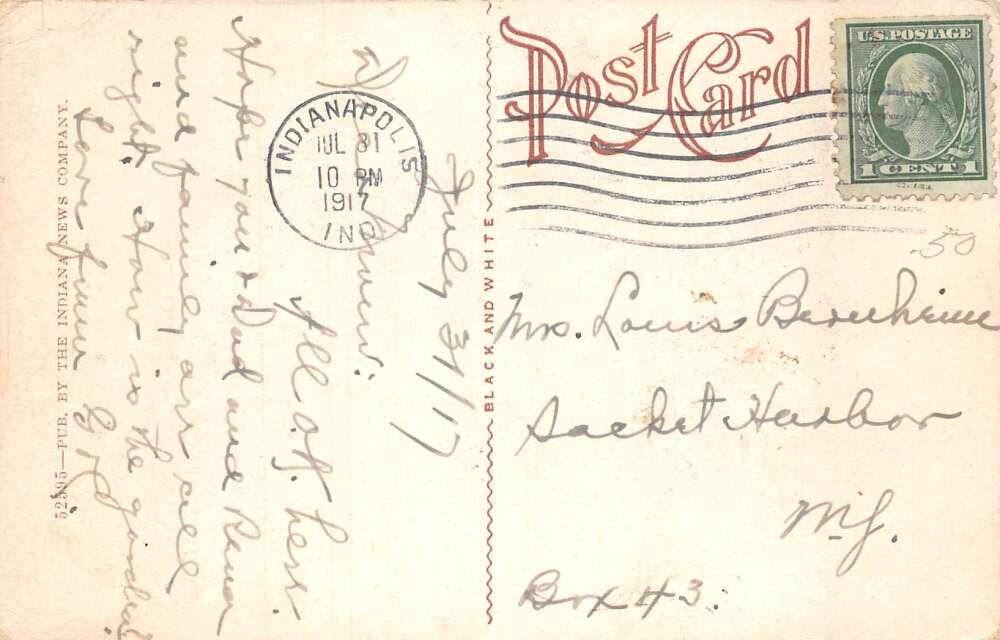 Post Card
U.S. POSTAGE
1 CENT 1
INDIANAPOLIS
JUL 31
10 PM
1917
IND
.50
Mrs. Louis Bernheim
Sacket Harbor
Box 43.
BLACK AND WHITE
July 31/17
All o.k. here
Hope you & Dad and Rena
and family are all
right. How is the
Love from
52595—PUB. BY THE INDIANA NEWS COMPANY.